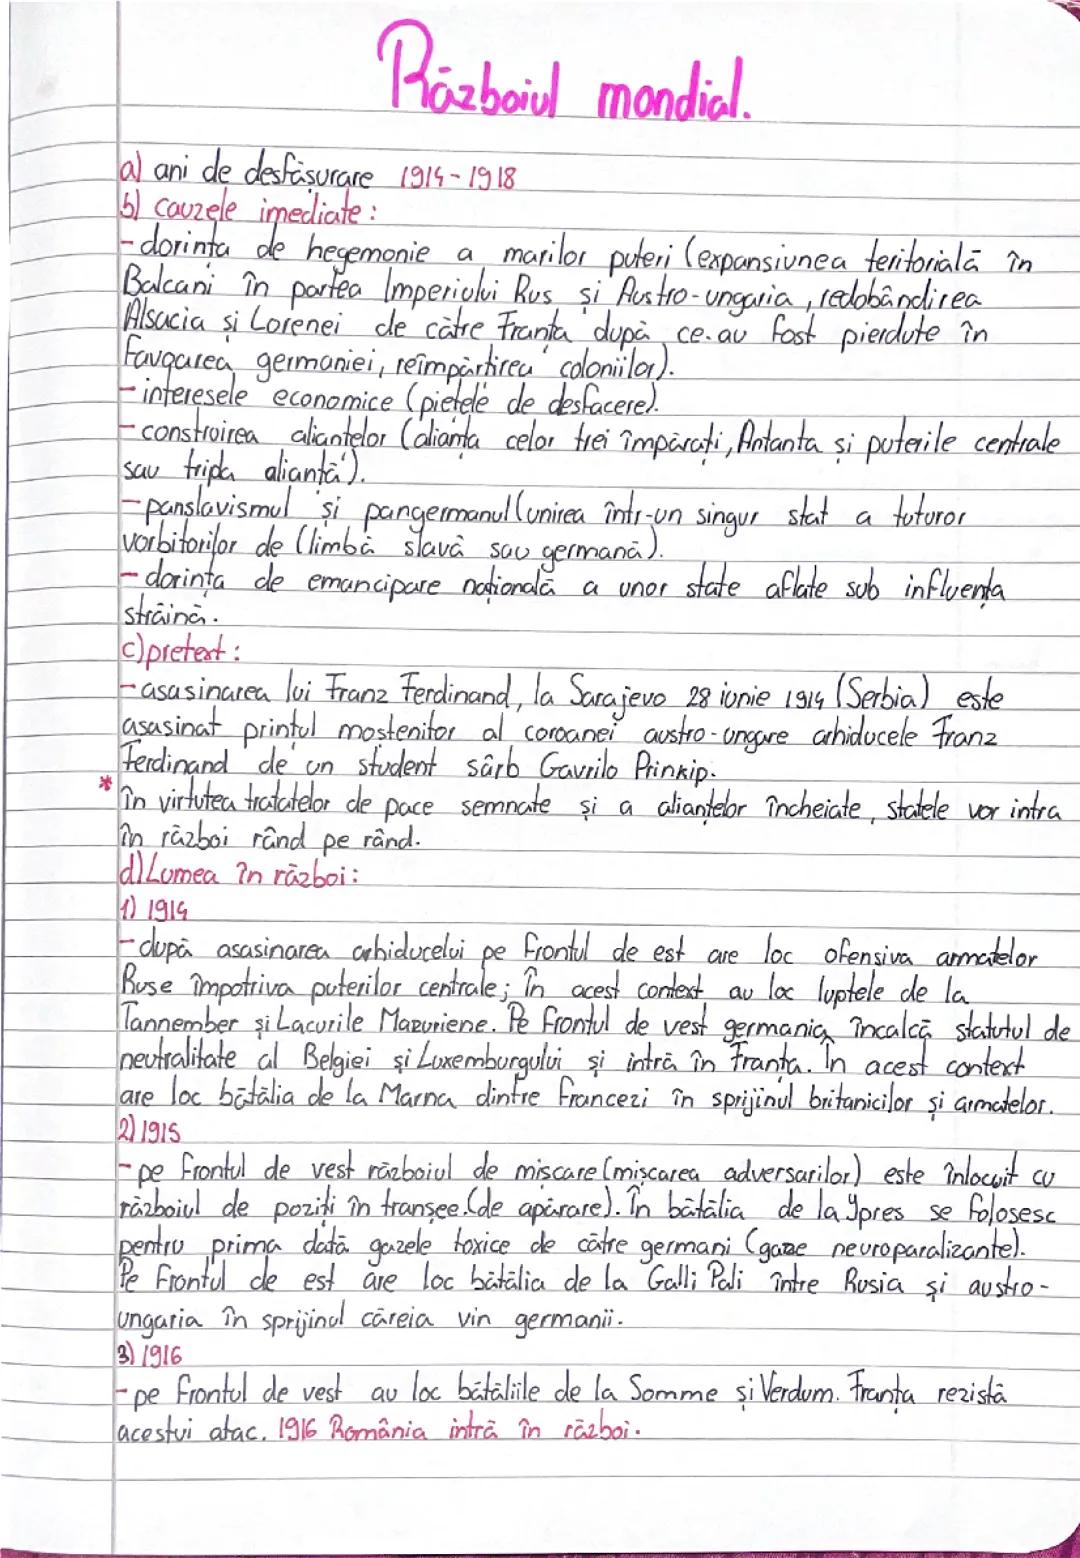 Războiul mondial.
a) ani de desfăsurare 1914-1918
b) cauzele imediate:
-dorința de hegemonie a marilor puteri (expansiunea teritorială în
Balcani în partea Imperiului Rus și Austro-ungaria, redobândirea
Alsacia și Lorenei de către Franța după ce au fost pierdute în
favoarea germaniei, reîmpărtirea coloniilor).
-interesele economice (piețele de desfacere).
-construirea alianțelor (alianța celor trei împărați, Antanta și puterile centrale
sau tripa alianță).
-panslavismul și pangermanul (unirea într-un singur stat a tuturor
vorbitorilor de (limbă slavă sau germană).
-dorința de emancipare națională a unor state aflate sub influența
străină.
c) pretext:
-asasinarea lui Franz Ferdinand, la Sarajevo 28 iunie 1914 (Serbia) este
asasinat prințul mostenitor al coroanei austro-ungare arhiducele Franz
Ferdinand de un student sârb Gavrilo Prinkip.
* în virtutea tratatelor de pace semnate și a alianțelor încheiate, statele vor intra
în război rând pe rând.
d) Lumea în război:
1) 1914
-după asasinarea arhiducelui pe frontul de est are loc ofensiva armatelor
Ruse împotriva puterilor centrale; în acest context au loc luptele de la
Tannember și Lacurile Mazuriene. Pe frontul de vest germania încalcă statutul de
neutralitate al Belgiei și Luxemburgului și intră în Franța. În acest context
are loc bătălia de la Marna dintre Francezi în sprijinul britanicilor și armatelor.
2) 1915
-pe frontul de vest războiul de mișcare (mișcarea adversarilor) este înlocuit cu
războiul de poziți în tranșee (de apărare). În bătălia de la Ypres se folosesc
pentru prima dată gazele toxice de către germani (gaze neuroparalizante).
Pe Frontul de est are loc bătălia de la Galli Pali între Rusia și austro-
ungaria în sprijinul căreia vin germanii.
3) 1916
-pe frontul de vest au loc bătăliile de la Somme și Verdum. Franța rezistă
acestui atac. 1916 România intră în război.